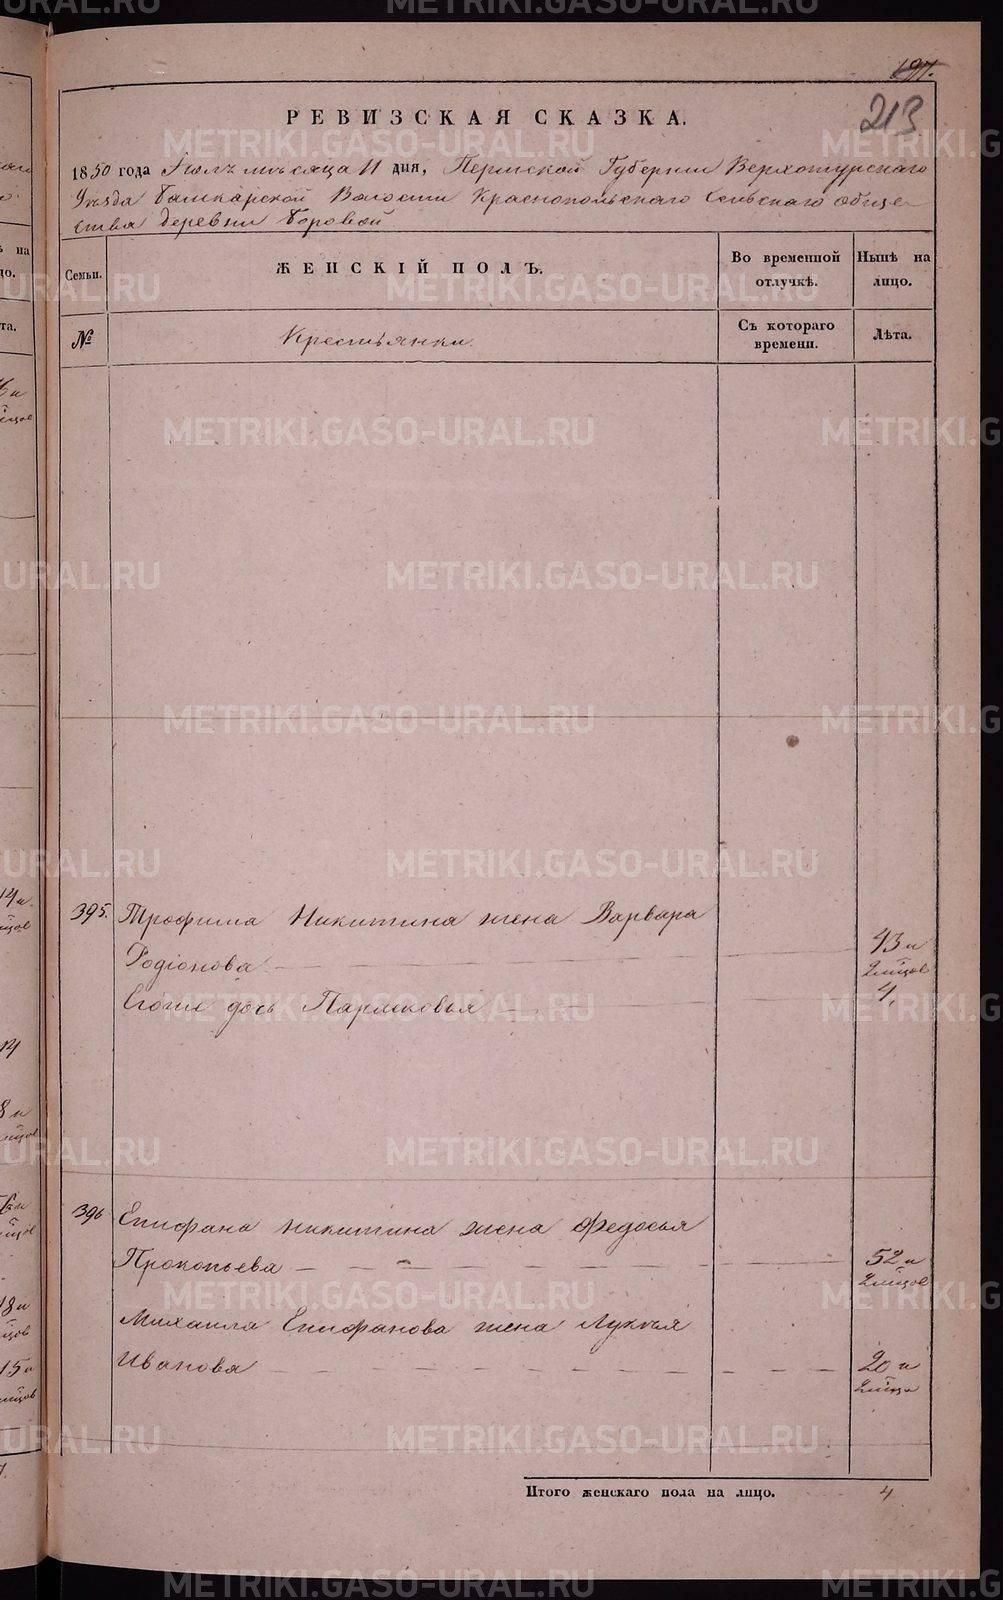 197.
213
РЕВИЗСКАЯ СКАЗКА.
1850 года Июль мѣсяца 11 дня, Пермской Губернии Верхотурскаго
Уѣзда Башкарской Волости Краснопольскаго Сельскаго обще
ства деревни Боровой
Семьи.
ЖЕНСКІЙ ПОЛЪ.
Во временной отлучкѣ.
Нынѣ на лицо.
№
Крестьянки.
Съ котораго времени.
Лѣта.
395. Трофима Никитина жена Варвара
Родіонова 43 и
2 мѣсцов
дочь Парасковья 4.
396 Епифана Никитина жена Федосья
Прокопьева 52 и
2 мѣсцов
Михаила Епифанова жена Лукѣья
Иванова 20 и
2 мѣсца
Итого женскаго пола на лицо. 4
METRIKI.GASO-URAL.RU